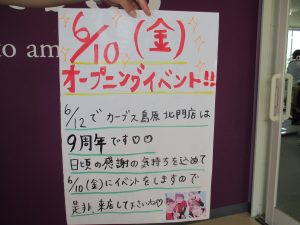 to am
6/10(金)
オープニングイベント!!
6/12でカーブス島原北門店は
9周年です♡♡
日頃の感謝の気持ちを込めて
6/10(金)にイベントをしますので
是非、来店して下さいね♡